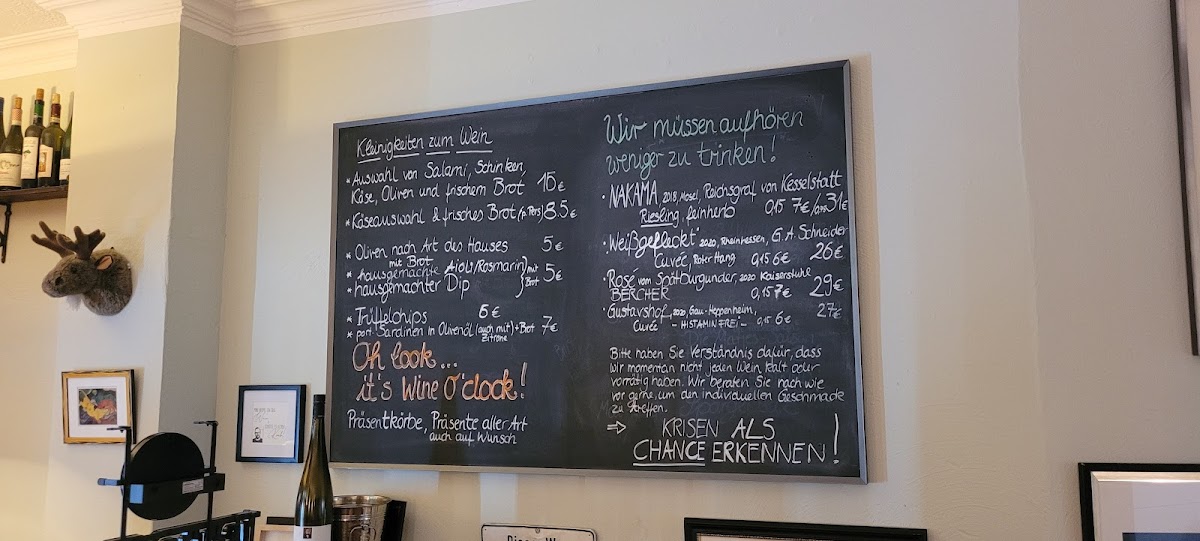 Kleinigkeiten zum Wein
* Auswahl von Salami, Schinken,
Käse, Oliven und frischem Brot 15€
* Käseauswahl & frisches Brot (p. Pers) 8.5€
* Oliven nach Art des Hauses 5€
mit Brot
* hausgemachte Aioli/Rosmarin
* hausgemachter Dip } mit Brot 5€
* Trüffelchips 6€
* port. Sardinen in Olivenöl (auch mit Zitrone) + Brot 7€
Oh look...
it's Wine O'clock!
Präsentkörbe, Präsente aller Art
auch auf Wunsch
Wir müssen aufhören
weniger zu trinken!
· NAKAMA, 2018, Mosel, Reichsgraf von Kesselstatt
Riesling, feinherb 0,15 7€/ 31€
· "Weißgefleckt" 2020, Rheinhessen, G.A. Schneider
Cuvée, Roter Hang 0,15 6€ 26€
· Rosé vom Spätburgunder, 2020 Kaiserstuhl
BERCHER 0,15 7€ 29€
· Gustavshof, 2020, Gau-Heppenheim, 27€
Cuvée - HISTAMINFREI - 0,15 6€
Bitte haben Sie Verständnis dafür, dass
wir momentan nicht jeden Wein kalt oder
vorrätig haben. Wir beraten Sie nach wie
vor gerne, um den individuellen Geschmack
zu treffen.
⇒ KRISEN ALS
CHANCE ERKENNEN!